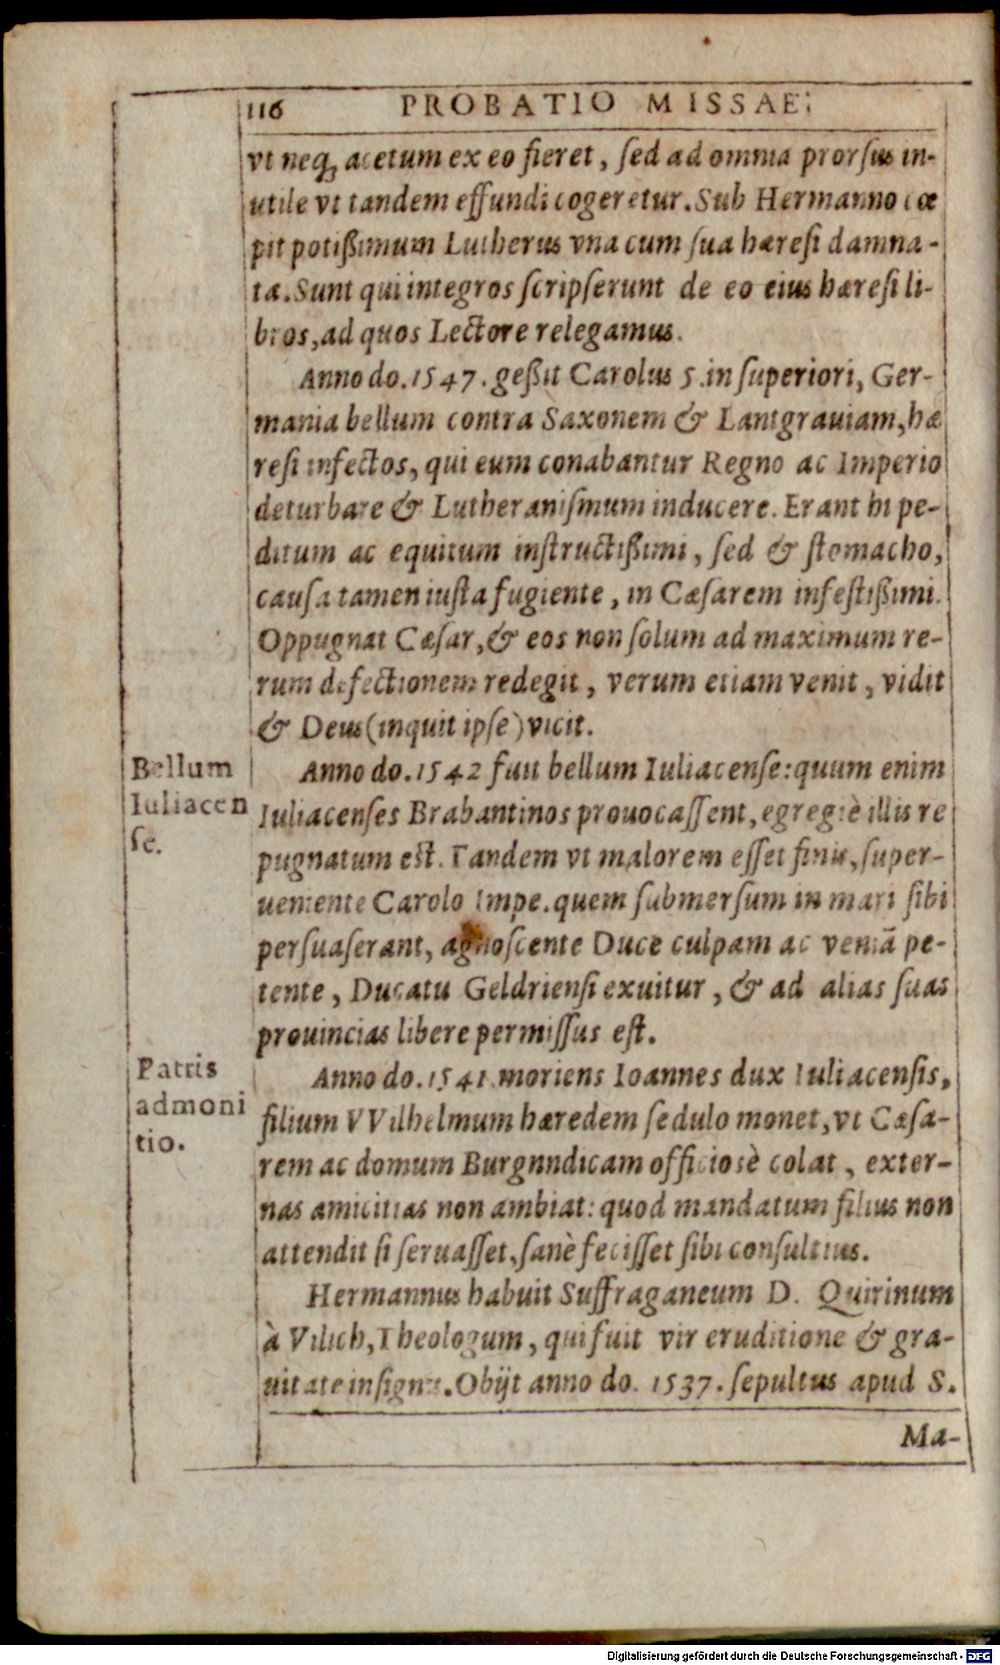 116 PROBATIO MISSAE.
vt neq; acetum ex eo fieret, sed ad omnia prorsus in-
utile vt tandem effundi cogeretur. Sub Hermanno cœ
pit potißimum Lutherus vna cum sua hæresi damna-
ta. Sunt qui integros scripserunt de eo eius hæresi li-
bros, ad quos Lectore relegamus.
Anno do. 1547. geßit Carolus 5. in superiori, Ger-
mania bellum contra Saxonem & Lantgrauiam, hæ
resi infectos, qui eum conabantur Regno ac Imperio
deturbare & Lutheranismum inducere. Erant hi pe-
ditum ac equitum instructißimi, sed & stomacho,
causa tamen iusta fugiente, in Cæsarem infestißimi.
Oppugnat Cæsar, & eos non solum ad maximum re-
rum defectionem redegit, verum etiam venit, vidit
& Deus (inquit ipse) vicit.
Bellum
Iuliacen
se.
Anno do. 1542 fuit bellum Iuliacense: quum enim
Iuliacenses Brabantinos prouocassent, egregiè illis re
pugnatum est. Tandem vt malorem esset finis, super-
ueniente Carolo Impe. quem submersum in mari sibi
persuaserant, agnoscente Duce culpam ac veniã pe-
tente, Ducatu Geldriensi exuitur, & ad alias suas
prouincias libere permissus est.
Patris
admoni
tio.
Anno do. 1541. moriens Ioannes dux Iuliacensis,
filium VVilhelmum hæredem sedulo monet, vt Cæsa-
rem ac domum Burgnndicam officiosè colat, exter-
nas amicitias non ambiat: quod mandatum filius non
attendit si seruasset, sanè fecisset sibi consultius.
Hermannus habuit Suffraganeum D. Quirinum
à Vilich, Theologum, qui fuit vir eruditione & gra-
uitate insignis. Obijt anno do. 1537. sepultus apud S.
Ma-
Digitalisierung gefördert durch die Deutsche Forschungsgemeinschaft - DFG